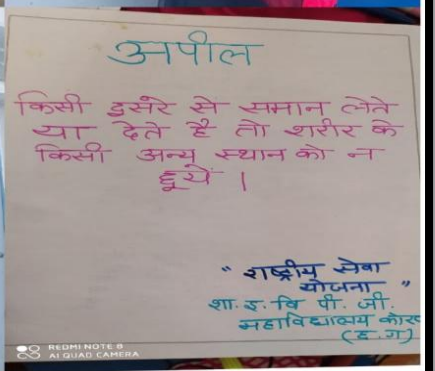 अपील
किसी दुसरे से समान लेते
या देते है तो शरीर के
किसी अन्य स्थान को न
छूयें |
" राष्ट्रीय सेवा
योजना "
शा. इ. वि पी. जी.
महाविद्यालय कोर
(छ. ग)
REDMI NOTE 8
AI QUAD CAMERA